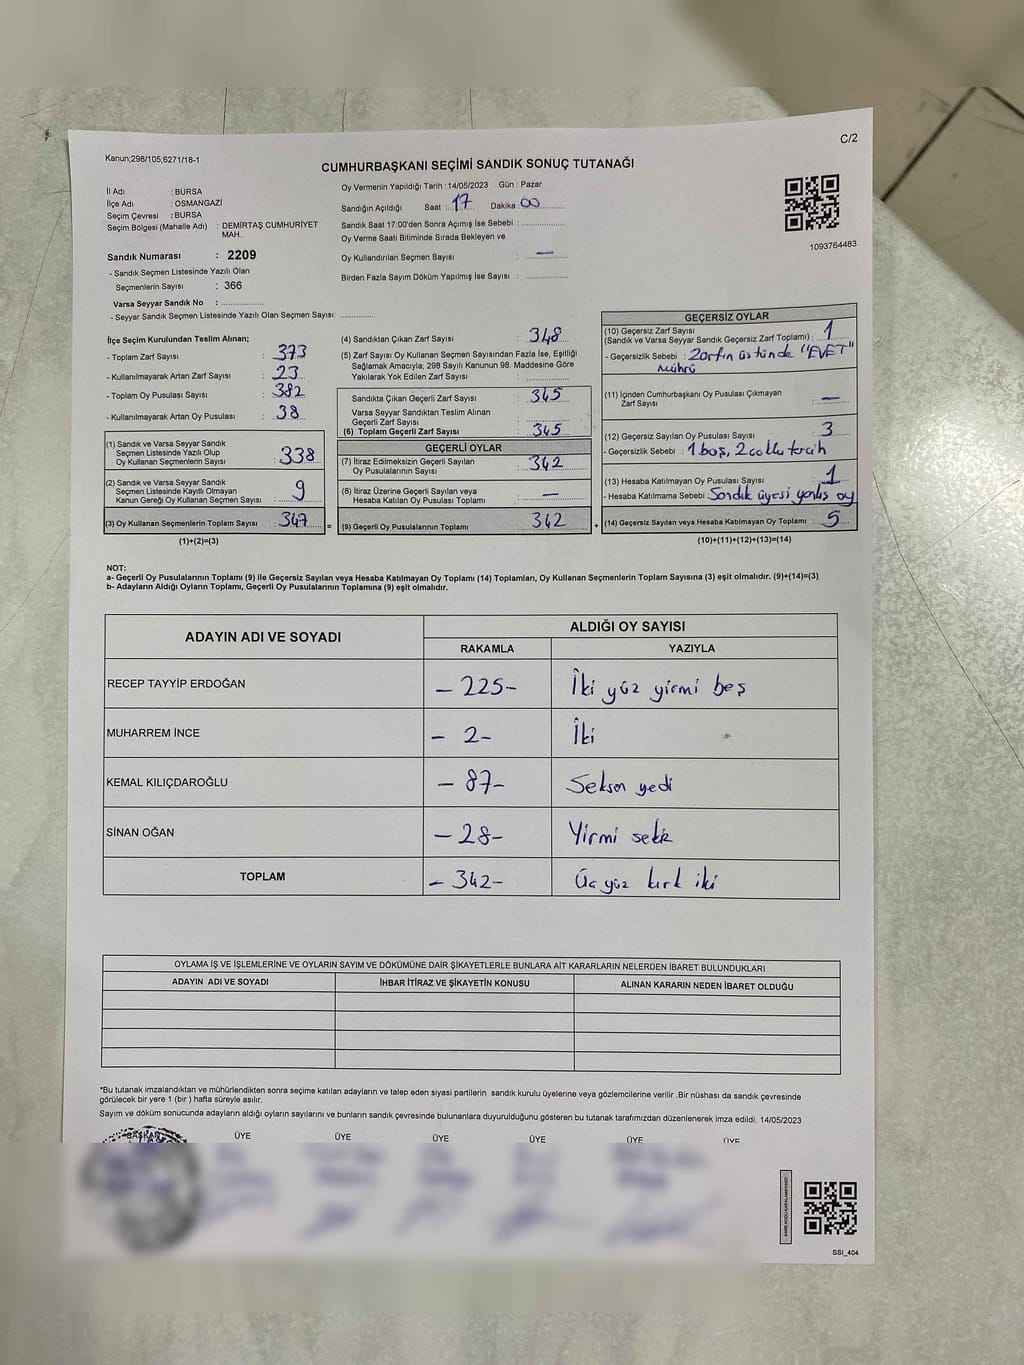 C/2
Kanun;298/105,6271/18-1
CUMHURBAŞKANI SEÇİMİ SANDIK SONUÇ TUTANAĞI
İl Adı : BURSA
İlçe Adı : OSMANGAZİ
Seçim Çevresi : BURSA
Seçim Bölgesi (Mahalle Adı) : DEMİRTAŞ CUMHURİYET MAH.
Sandık Numarası : 2209
- Sandık Seçmen Listesinde Yazılı Olan
Seçmenlerin Sayısı : 366
Varsa Seyyar Sandık No : ..............
- Seyyar Sandık Seçmen Listesinde Yazılı Olan Seçmen Sayısı: ............
Oy Vermenin Yapıldığı Tarih : 14/05/2023 Gün : Pazar
Sandığın Açıldığı Saat : 17 Dakika 00
Sandık Saat 17:00'den Sonra Açımış İse Sebebi : ..............
Oy Verme Saati Bitiminde Sırada Bekleyen ve
Oy Kullandırılan Seçmen Sayısı : —
Birden Fazla Sayım Döküm Yapılmış İse Sayısı : ..............
1093764483
İlçe Seçim Kurulundan Teslim Alınan;
- Toplam Zarf Sayısı : 373
- Kullanılmayarak Artan Zarf Sayısı : 23
- Toplam Oy Pusulası Sayısı : 382
- Kullanılmayarak Artan Oy Pusulası : 38
(1) Sandık ve Varsa Seyyar Sandık
Seçmen Listesinde Yazılı Olup
Oy Kullanan Seçmenlerin Sayısı : 338
(2) Sandık ve Varsa Seyyar Sandık
Seçmen Listesinde Kayıtlı Olmayan
Kanun Gereği Oy Kullanan Seçmen Sayısı : 9
(3) Oy Kullanan Seçmenlerin Toplam Sayısı : 347 =
(1)+(2)=(3)
(4) Sandıktan Çıkan Zarf Sayısı : 348
(5) Zarf Sayısı Oy Kullanan Seçmen Sayısından Fazla İse, Eşitliği
Sağlamak Amacıyla; 298 Sayılı Kanunun 98. Maddesine Göre
Yakılarak Yok Edilen Zarf Sayısı : ..............
Sandıkta Çıkan Geçerli Zarf Sayısı : 345
Varsa Seyyar Sandıktan Teslim Alınan
Geçerli Zarf Sayısı : ..............
(6) Toplam Geçerli Zarf Sayısı : 345
GEÇERLİ OYLAR
(7) İtiraz Edilmeksizin Geçerli Sayılan
Oy Pusulalarının Sayısı : 342
(8) İtiraz Üzerine Geçerli Sayılan veya
Hesaba Katılan Oy Pusulası Toplamı : —
(9) Geçerli Oy Pusulalarının Toplamı : 342 +
GEÇERSİZ OYLAR
(10) Geçersiz Zarf Sayısı
(Sandık ve Varsa Seyyar Sandık Geçersiz Zarf Toplamı) : 1
- Geçersizlik Sebebi : Zarfın üstünde "EVET"
mührü
(11) İçinden Cumhurbaşkanı Oy Pusulası Çıkmayan
Zarf Sayısı : —
(12) Geçersiz Sayılan Oy Pusulası Sayısı : 3
- Geçersizlik Sebebi : 1 boş, 2 çoklu tercih
(13) Hesaba Katılmayan Oy Pusulası Sayısı : 1
- Hesaba Katılmama Sebebi Sandık üyesi yanlış oy
(14) Geçersiz Sayılan veya Hesaba Katılmayan Oy Toplamı : 5
(10)+(11)+(12)+(13)=(14)
NOT:
a- Geçerli Oy Pusulalarının Toplamı (9) ile Geçersiz Sayılan veya Hesaba Katılmayan Oy Toplamı (14) Toplamları, Oy Kullanan Seçmenlerin Toplam Sayısına (3) eşit olmalıdır. (9)+(14)=(3)
b- Adayların Aldığı Oyların Toplamı, Geçerli Oy Pusulalarının Toplamına (9) eşit olmalıdır.
ADAYIN ADI VE SOYADI ALDIĞI OY SAYISI
RAKAMLA YAZIYLA
RECEP TAYYİP ERDOĞAN – 225 – İki yüz yirmi beş
MUHARREM İNCE – 2 – İki
KEMAL KILIÇDAROĞLU – 87 – Seksen yedi
SİNAN OĞAN – 28 – Yirmi sekiz
TOPLAM – 342 – Üç yüz kırk iki
OYLAMA İŞ VE İŞLEMLERİNE VE OYLARIN SAYIM VE DÖKÜMÜNE DAİR ŞİKAYETLERLE BUNLARA AİT KARARLARIN NELERDEN İBARET BULUNDUKLARI
ADAYIN ADI VE SOYADI İHBAR İTİRAZ VE ŞİKAYETİN KONUSU ALINAN KARARIN NEDEN İBARET OLDUĞU
*Bu tutanak imzalandıktan ve mühürlendikten sonra seçime katılan adayların ve talep eden siyasi partilerin sandık kurulu üyelerine veya gözlemcilerine verilir .Bir nüshası da sandık çevresinde
görülecek bir yere 1 (bir ) hafta süreyle asılır.
Sayım ve döküm sonucunda adayların aldığı oyların sayılarını ve bunların sandık çevresinde bulunanlara duyurulduğunu gösteren bu tutanak tarafımızdan düzenlenerek imza edildi. 14/05/2023
BAŞKAN ÜYE ÜYE ÜYE ÜYE ÜYE ÜYE
SSI_404